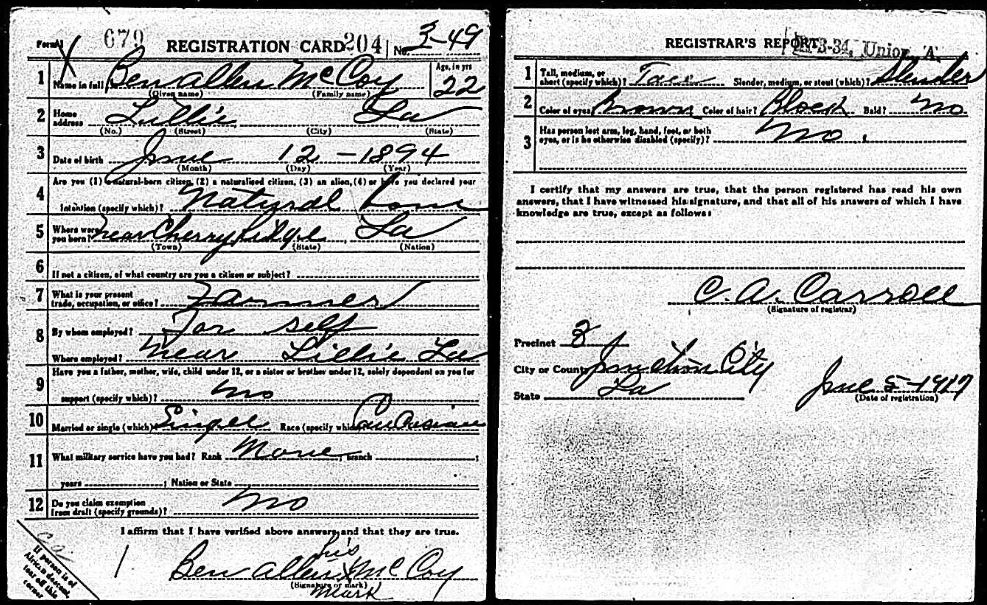 Form 1 679 REGISTRATION CARD 204 No. 3-49
1 Name in full Ben allen McCoy Age, in yrs 22
(Given name) (Family name)
2 Home address Lillie La
(No.) (Street) (City) (State)
3 Date of birth June 12 - 1894
(Month) (Day) (Year)
4 Are you (1) a natural-born citizen, (2) a naturalized citizen, (3) an alien, (4) or have you declared your
intention (specify which)? Natural born
5 Where were you born? near Cherry Ridge La
(Town) (State) (Nation)
6 If not a citizen, of what country are you a citizen or subject?
7 What is your present trade, occupation, or office? Farmer
8 By whom employed? For self
Where employed? near Lillie La
9 Have you a father, mother, wife, child under 12, or a sister or brother under 12, solely dependent on you for
support (specify which)? no
10 Married or single (which)? Singel Race (specify which)? Caucasian
11 What military service have you had? Rank None ; branch ;
years ; Nation or State
12 Do you claim exemption from draft (specify grounds)? no
I affirm that I have verified above answers and that they are true.
his
Ben allen X McCoy
(Signature or mark)
mark
If person is of
African descent,
tear off this
corner
REGISTRAR'S REPORT 3-34, Union 'A'
1 Tall, medium, or short (specify which)? Tall Slender, medium, or stout (which)? Slender
2 Color of eyes? Brown Color of hair? Black Bald? no
3 Has person lost arm, leg, hand, foot, or both
eyes, or is he otherwise disabled (specify)? no.
I certify that my answers are true, that the person registered has read his own
answers, that I have witnessed his signature, and that all of his answers of which I have
knowledge are true, except as follows:
C. A. Carroll
(Signature of registrar)
Precinct
City or County Junction City
State La June 5-1917
(Date of registration)